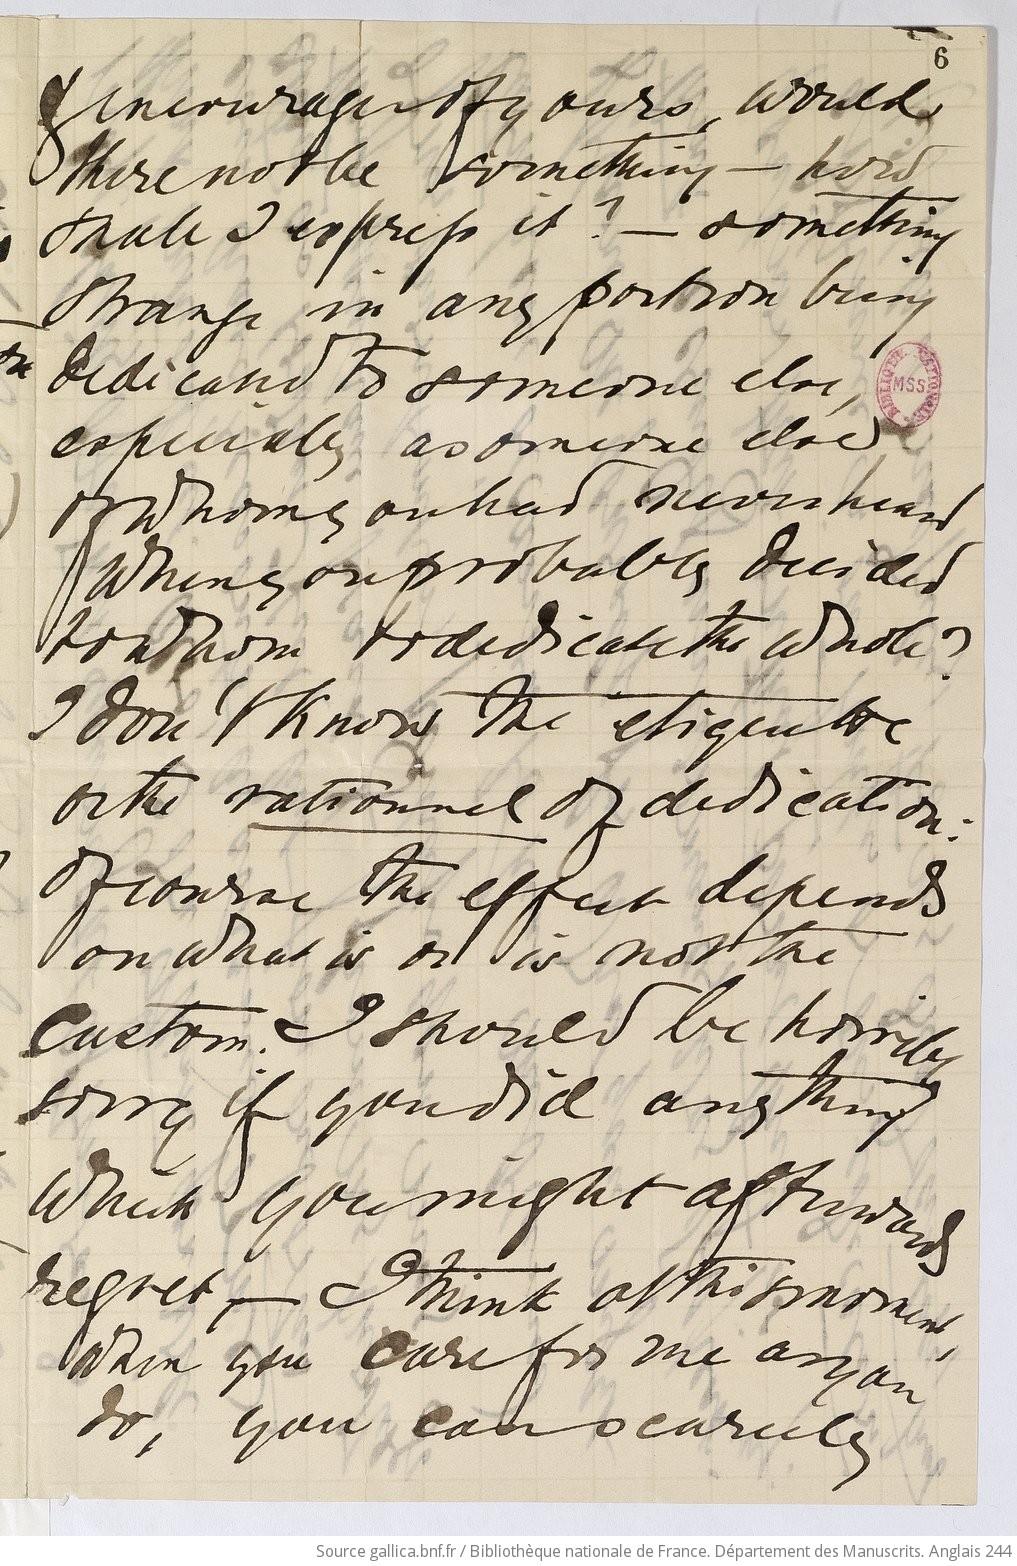 6
& encourager of yours, would
there not be something — how
shall I express it? — something
strange in any portion being
dedicated to someone else,
especially a someone else
of whom you had never heard
when you probably decided
to whom to dedicate the whole?
I don't know the etiquette
or the rationnel of dedication:
of course the effect depends
on what is or is not the
custom. I should be horribly
sorry if you did anything
which you might afterwards
regret, — I think at this moment,
when you care for me as you
do, you can scarcely
BIBLIOTHEQUE NATIONALE
MSS
Source gallica.bnf.fr / Bibliothèque nationale de France. Département des Manuscrits. Anglais 244